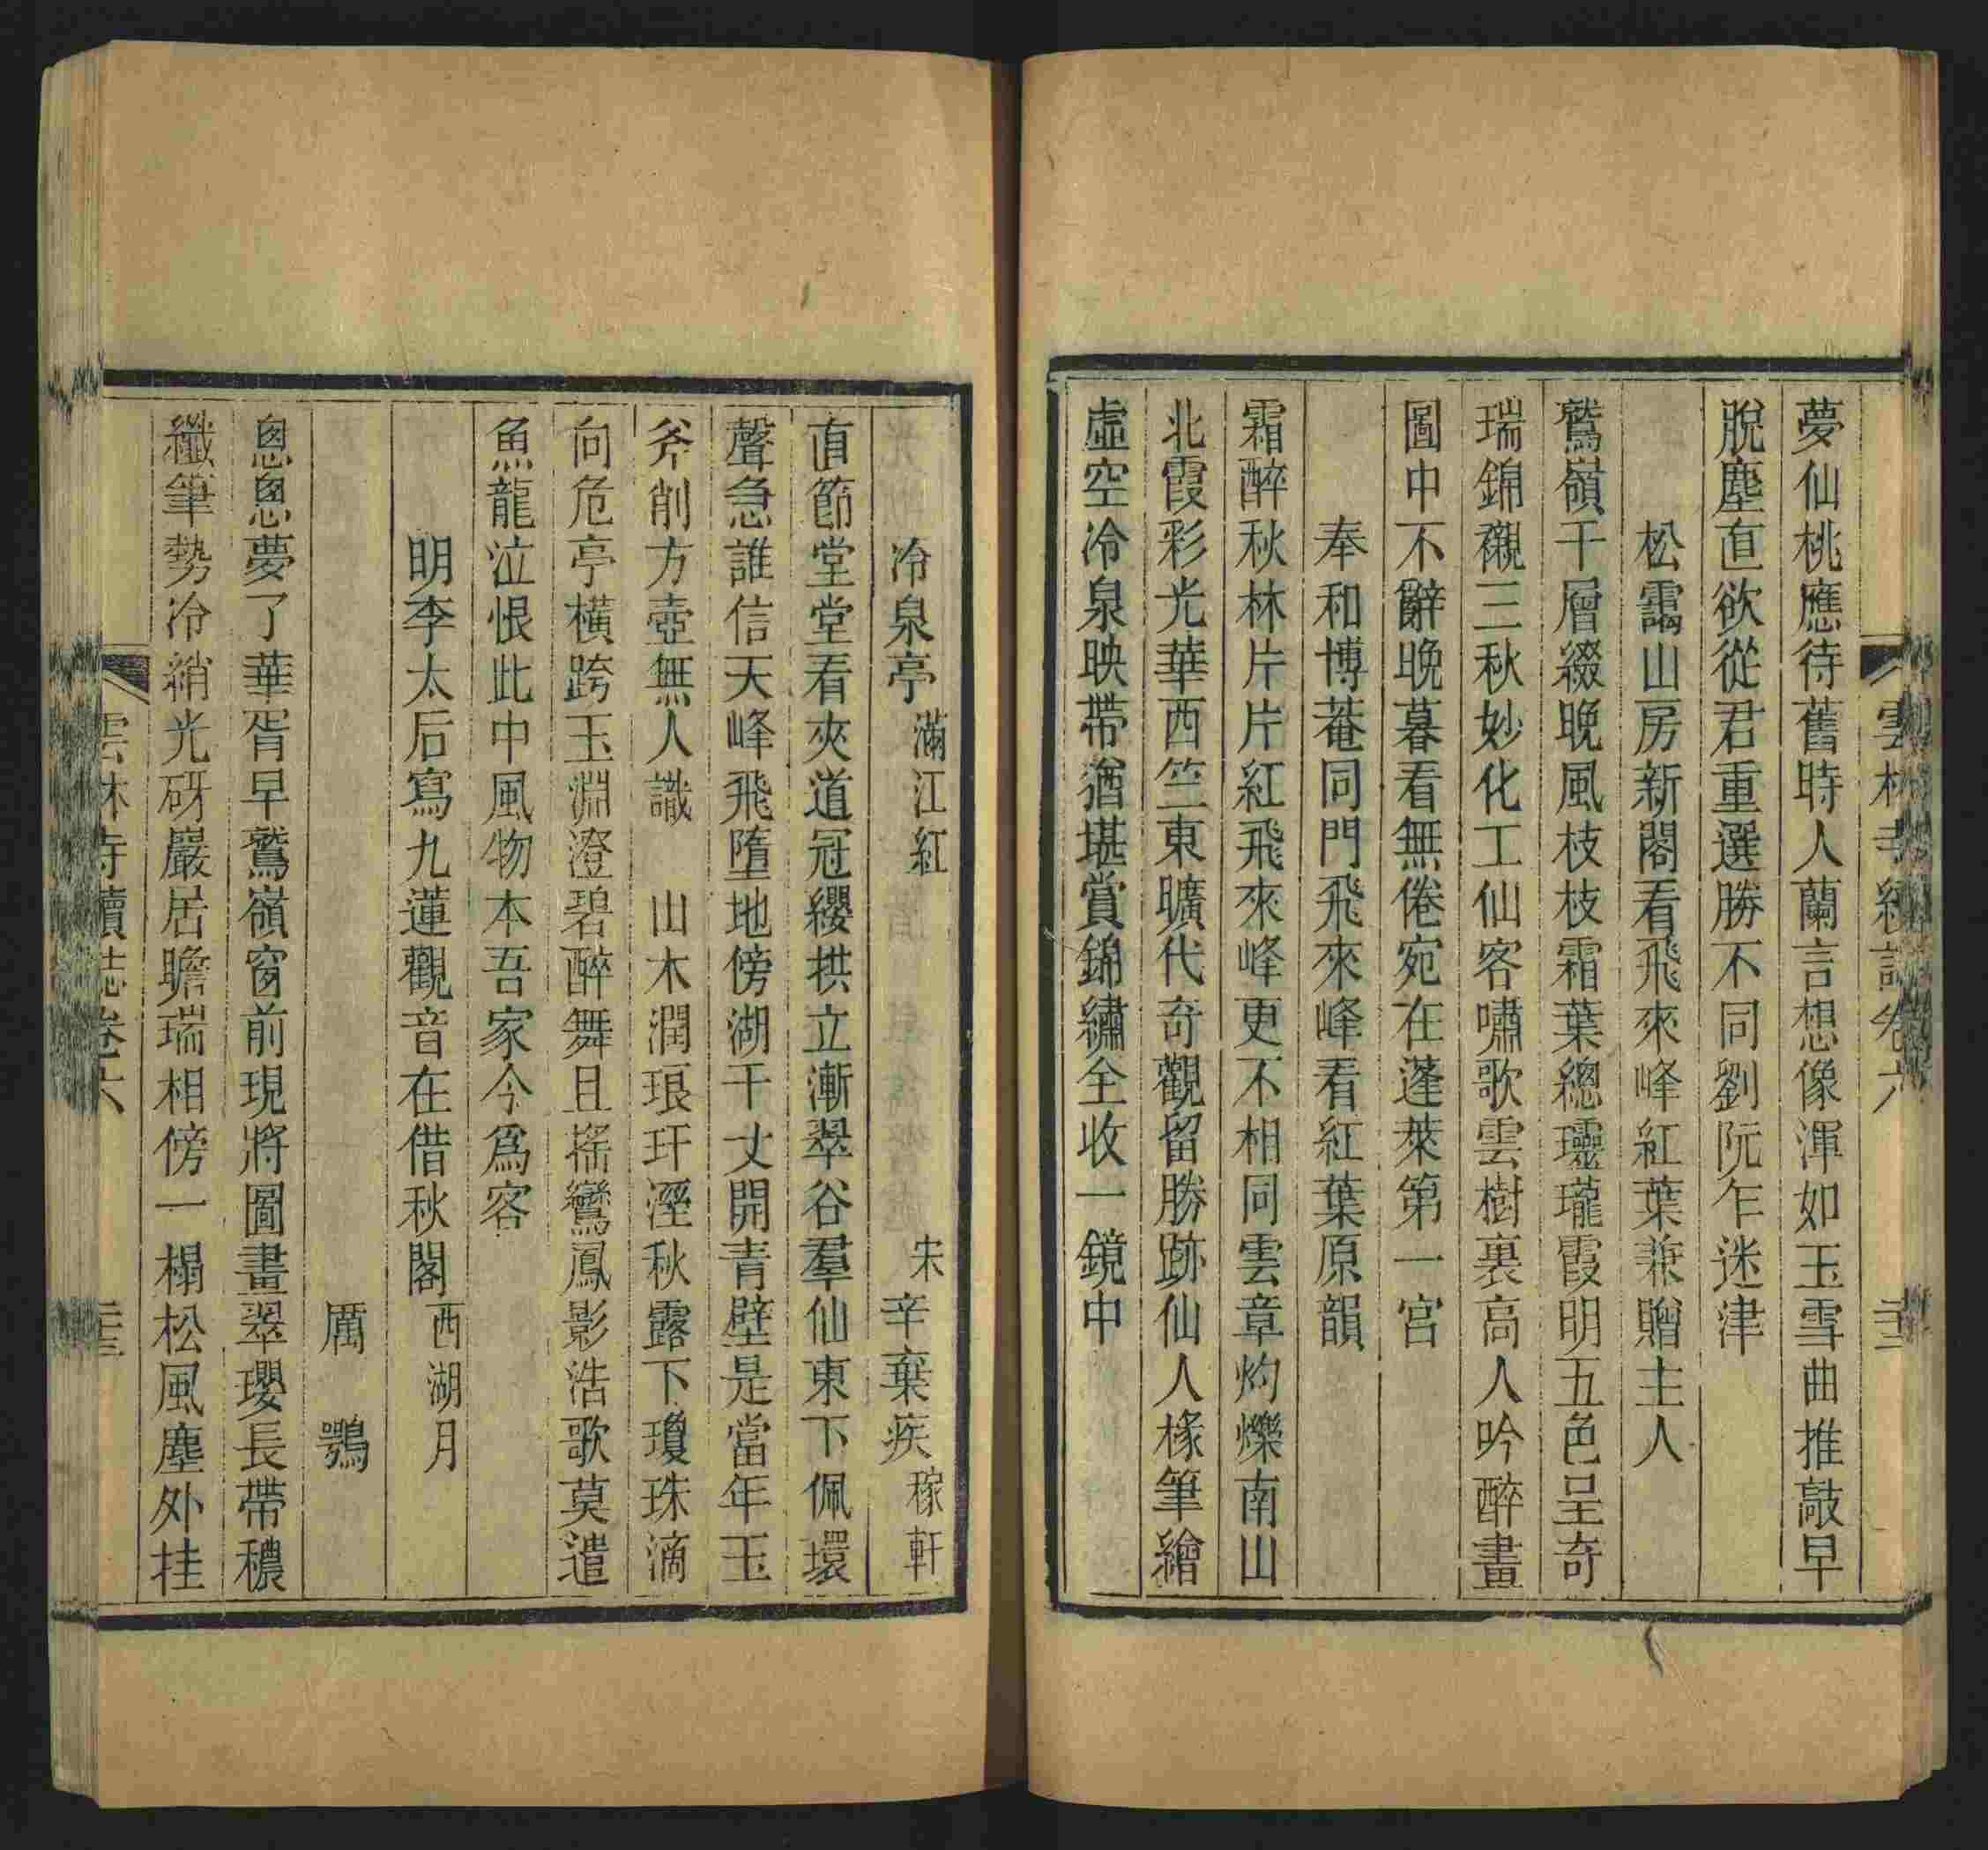 雲林寺續誌卷六
夢仙桃應待舊時人蘭言想像渾如玉雪曲推敲早
脫塵直欲從君重選勝不同劉阮乍迷津
松靄山房新閣看飛來峰紅葉兼贈主人
鷲嶺千層綴晚風枝枝霜葉總瓏霞明五色呈奇
瑞錦襯三秋妙化工仙客嘯歌雲樹裏高人吟醉畫
圖中不辭晚暮看無倦宛在蓬萊第一宮
奉和博菴同門飛來峰看紅葉原韻
霜醉秋林片片紅飛來峰更不相同雲章灼爍南山
北霞彩光華西竺東曠代奇觀留勝跡仙人椽筆繪
虛空冷泉映帶猶堪賞錦繡全收一鏡中
冷泉亭 滿江紅 宋 辛棄疾 稼軒
直節堂堂看夾道冠纓拱立漸翠谷羣仙東下佩環
聲急誰信天峰飛墮地傍湖千丈開青壁是當年玉
斧削方壺無人識 山木潤琅玕溼秋露下瓊珠滴
向危亭橫跨玉淵澄碧醉舞且搖鸞鳳影浩歌莫遣
魚龍泣恨此中風物本吾家今爲客
明李太后寫九蓮觀音在借秋閣 西湖月
厲 鶚
悤悤夢了華胥早鷲嶺窗前現將圖畫翠瓔長帶穠
纖筆勢冷綃光砑巖居瞻瑞相傍一榻松風塵外挂
雲林寺續誌卷六